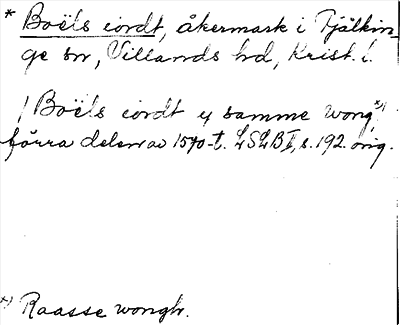 * Boëls iordt, åkermark i Fjälkin-
ge sn, Villands hd, Krist. l.
/ Boëls iordt y samme wong, *)/
förra delen av 1570-t. LSLB I, s. 192. orig.
*) Raasse wongh.